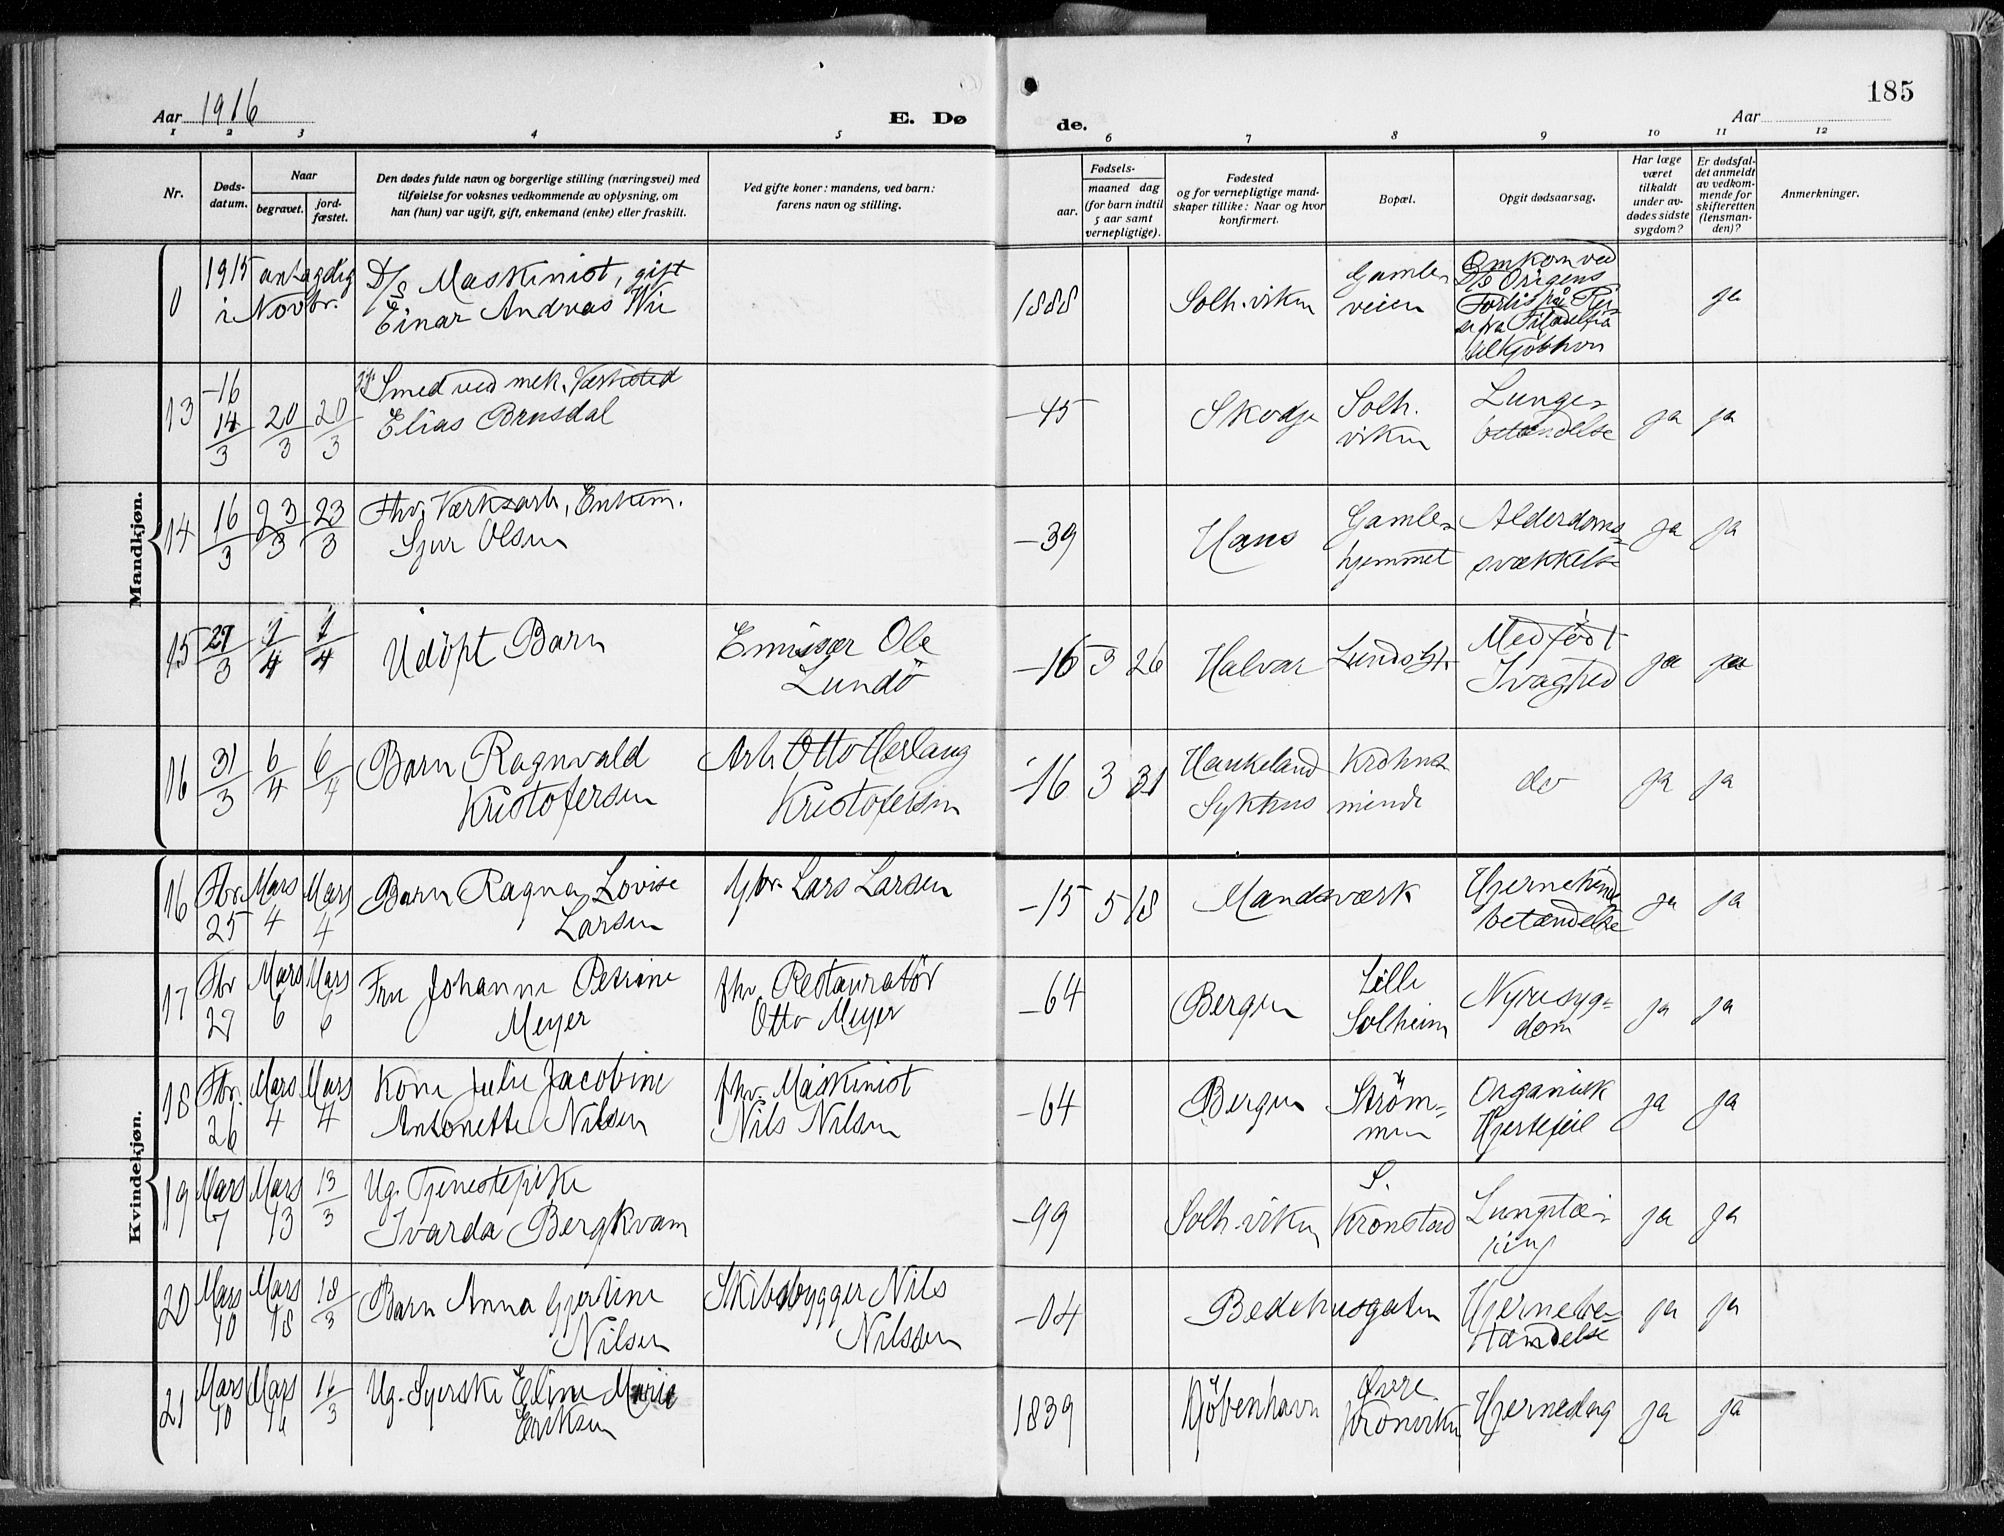 Aar 1916
E. Dø
de.
Aar
185
1 2 3 4 5 6 7 8 9 10 11 12
Nr.
Døds-
datum.
Naar
begravet.
jord-
fæstet.
Den dødes fulde navn og borgerlige stilling (næringsvei) med
tilføielse for voksnes vedkommende av oplysning, om
han (hun) var ugift, gift, enkemand (enke) eller fraskilt.
Ved gifte koner: mandens, ved barn:
farens navn og stilling.
Fødsels-
aar.
maaned dag
(for barn indtil
5 aar samt
vernepligtige).
Fødested
og for vernepligtige mand-
skaper tillike: Naar og hvor
konfirmert.
Bopæl.
Opgit dødsaarsag.
Har læge
været
tilkaldt
under av-
dødes sidste
sygdom?
Er dødsfal-
det anmeldt
av vedkom-
mende for
skifteretten
(lensman-
den)?
Anmerkninger.
Mandkjøn.
0 1915 antagelig
i Novbr.
D/S Maskinist, gift
Einar Andreas Wie
1888
Solh.viken
Gamle-
veien
Omkom ved
D/S Origens
Forlis på Rei-
se fra Filadelfia
til Kjøbhvn
ja
13 -16
14/3 20/3 20/3
Smed ved mek. Værksted
Elias Brusdal
-45
Skodje
Solh.
viken
Lunge-
betændelse
ja ja
14 16/3 23/3 23/3
Fhv. Værksarb, Enkem.
Sjur Olsen
-39
Haus
Gamle-
hjemmet
Alderdoms-
svækkelse
ja ja
15 27/3 1/4 1/4
Udöpt Barn
Emissær Ole
Lundö
-16 3 26
Halvar
Medfødt
Svaghed
ja ja
16 31/3 6/4 6/4
Barn Ragnvald
Kristofersen
Arb. Otto Herlaug
Kristofersen
-16 3 31
Haukeland
Sykehus
Krohns
minde
do
ja ja
Kvindekjøn.
16 Fbr. 25 Mars 4 Mars 4
Barn Ragna Lovise
Larsen
Gbr. Lars Larsen
-15 5 18
Mandsværk
Hjernehinde
betændelse
ja ja
17 Fbr 27 Mars 6 Mars 6
Fru Johanne Petrine
Meyer
fhv. Restauratör
Otto Meyer
-64
Bergen
Lille
Solheim
Nyresyg-
dom
ja ja
18 Fbr. 26 Mars 4 Mars 4
Kone Julie Jacobine
Antonette Nilsen
fhv. Maskinist
Nils Nilsen
-64
Bergen
Ström-
men
Organisk
Hjertefeil
ja ja
19 Mars 7 Mars 13 13/3
Ug. Tjenestepike
Ivarda Bergkvam
-99
Solh.viken
S.
Kronstad
Lungetæ-
ring
ja ja
20 Mars 10 Mars 18 18/3
Barn Anna Gjertine
Nilsen
Skibsbygger Nils
Nilssen
-04
Bedehusgaten
Hjernebe-
tændelse
ja ja
21 Mars 10 Mars 16 16/3
Ug. Syerske Eline Marie
Eriksen
1839
Kjöbenhavn
Øvre
Kronviken
Hjerneslag
ja ja